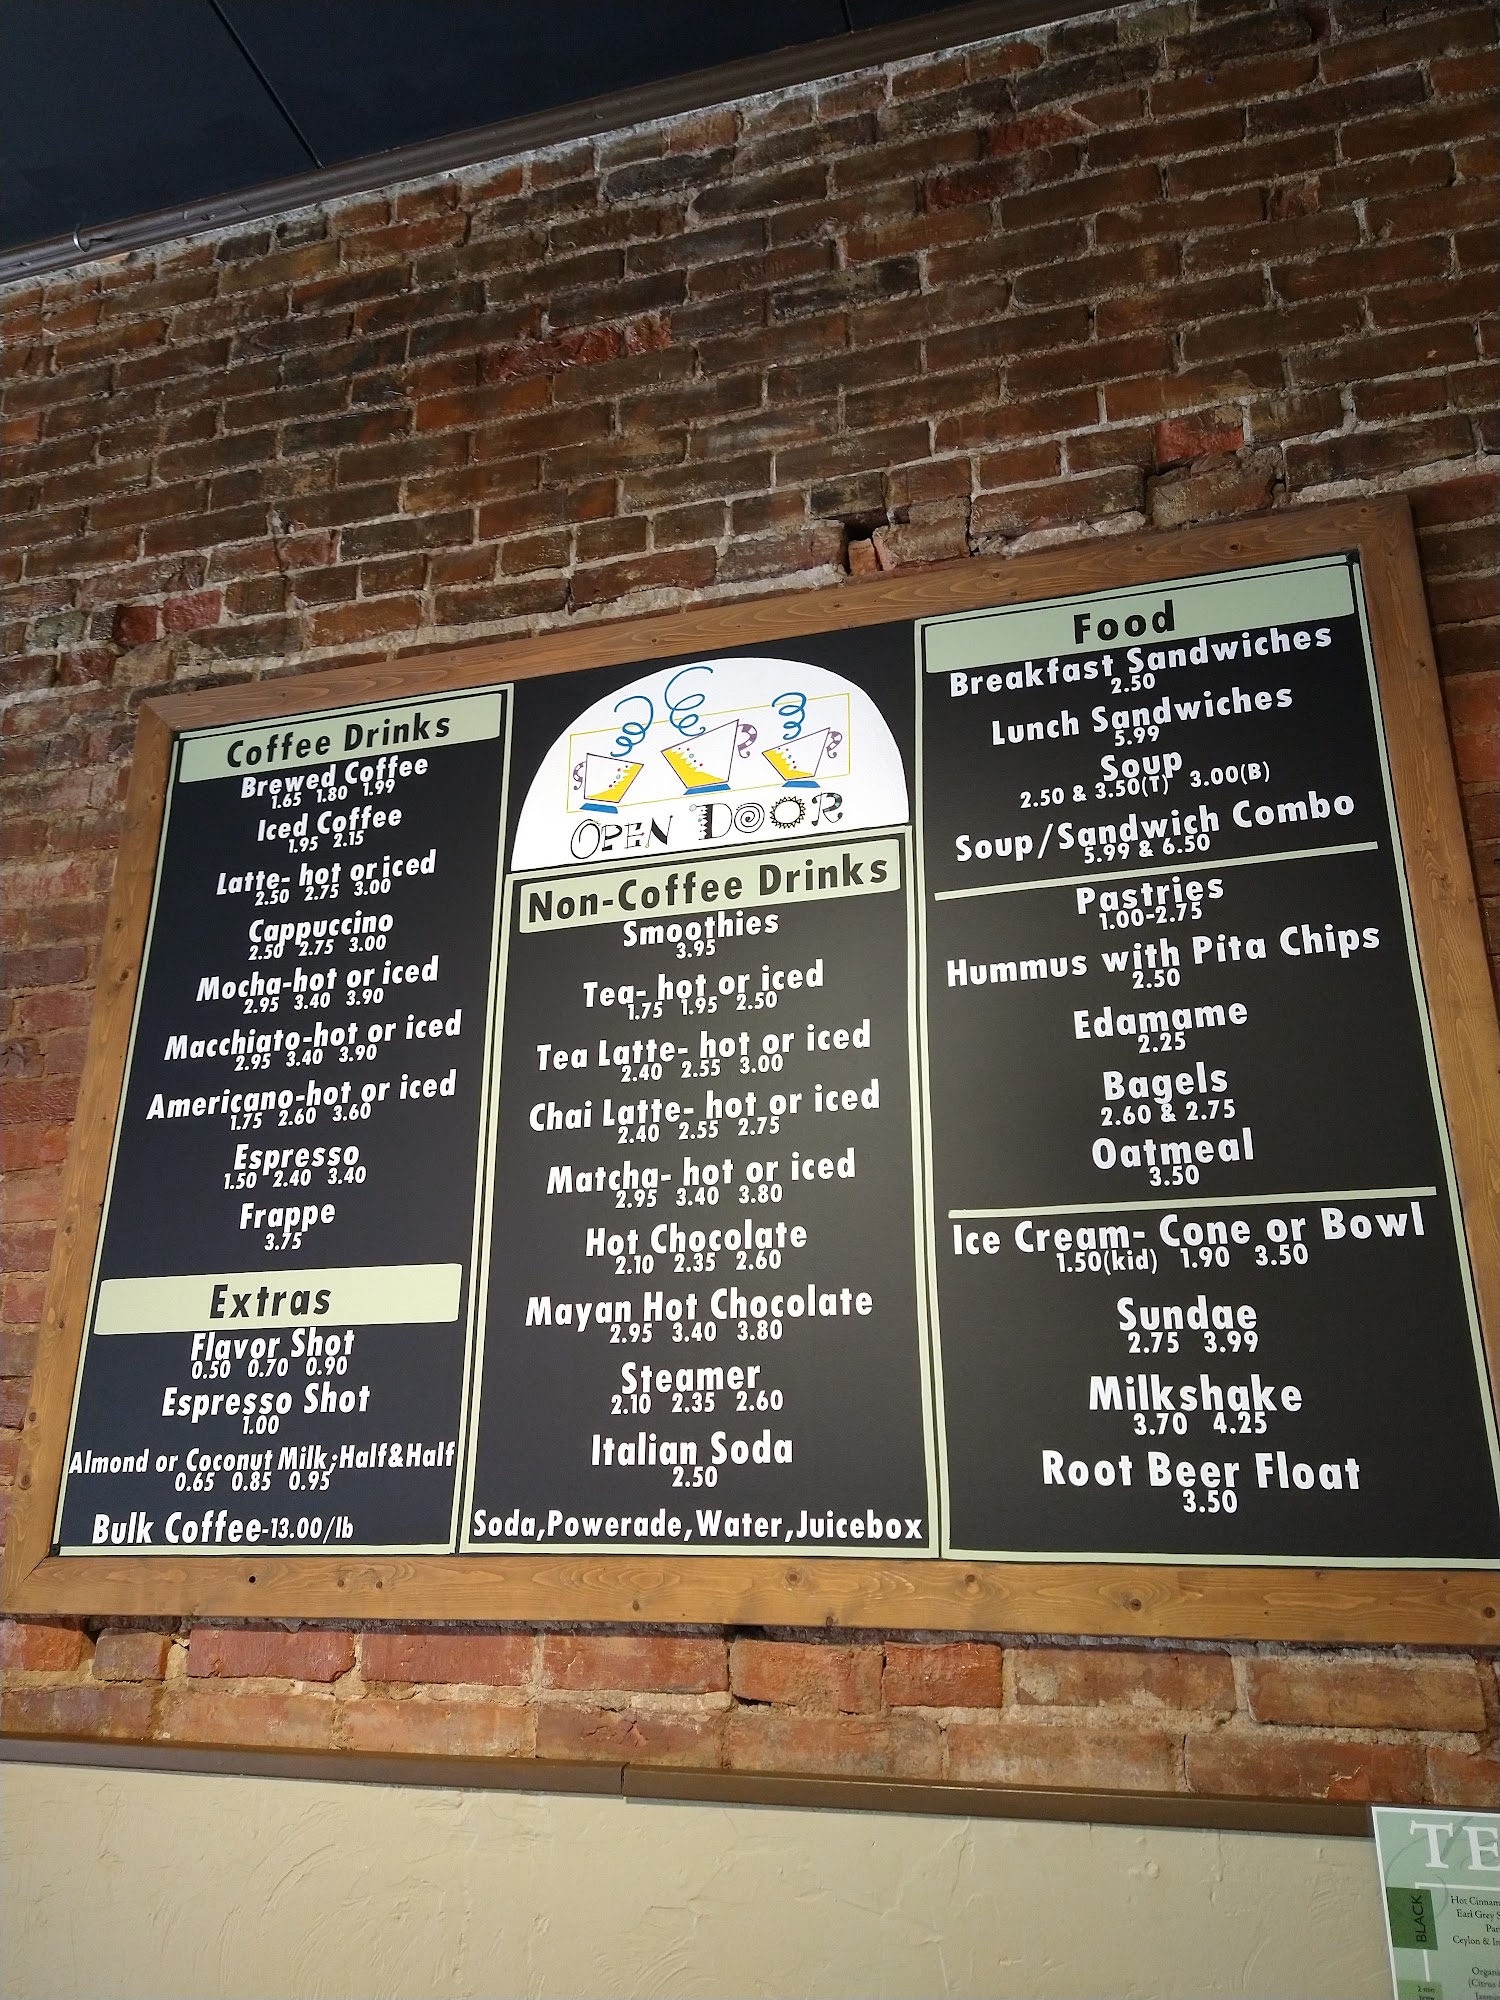 Coffee Drinks
Brewed Coffee
1.65 1.80 1.99
Iced Coffee
1.95 2.15
Latte- hot or iced
2.50 2.75 3.00
Cappuccino
2.50 2.75 3.00
Mocha-hot or iced
2.95 3.40 3.90
Macchiato-hot or iced
2.95 3.40 3.90
Americano-hot or iced
1.75 2.60 3.60
Espresso
1.50 2.40 3.40
Frappe
3.75
Extras
Flavor Shot
0.50 0.70 0.90
Espresso Shot
1.00
Almond or Coconut Milk;Half&Half
0.65 0.85 0.95
Bulk Coffee-13.00/lb
OPEN DOOR
Non-Coffee Drinks
Smoothies
3.95
Tea- hot or iced
1.75 1.95 2.50
Tea Latte- hot or iced
2.40 2.55 3.00
Chai Latte- hot or iced
2.40 2.55 2.75
Matcha- hot or iced
2.95 3.40 3.80
Hot Chocolate
2.10 2.35 2.60
Mayan Hot Chocolate
2.95 3.40 3.80
Steamer
2.10 2.35 2.60
Italian Soda
2.50
Soda,Powerade,Water,Juicebox
Food
Breakfast Sandwiches
2.50
Lunch Sandwiches
5.99
Soup
2.50 & 3.50(T) 3.00(B)
Soup/Sandwich Combo
5.99 & 6.50
Pastries
1.00-2.75
Hummus with Pita Chips
2.50
Edamame
2.25
Bagels
2.60 & 2.75
Oatmeal
3.50
Ice Cream- Cone or Bowl
1.50(kid) 1.90 3.50
Sundae
2.75 3.99
Milkshake
3.70 4.25
Root Beer Float
3.50
TE
BLACK
Hot Cinnam
Earl Grey
Ceylon &
Organi
(Citrus
2 min